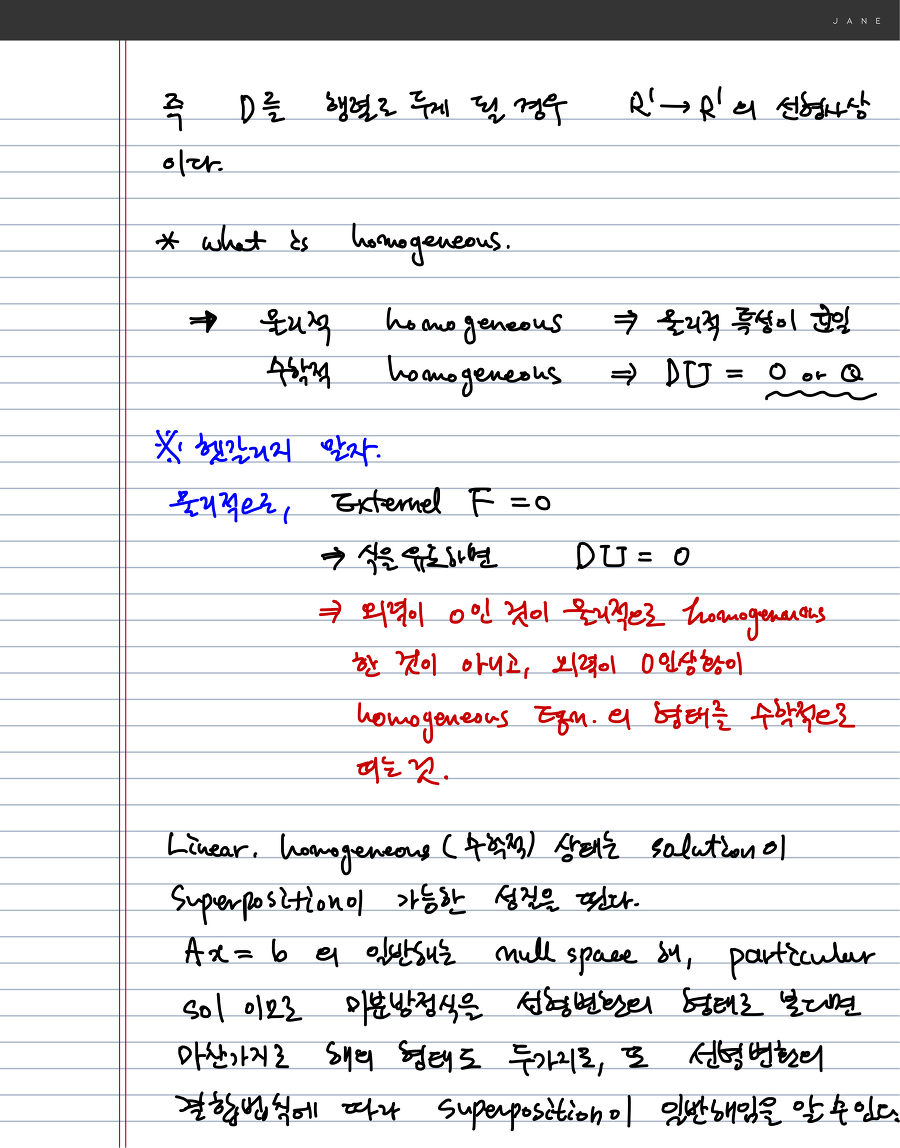 JANE
즉 D를 행렬로 두게 될 경우 R' → R' 의 선형사상
이다.
* what is homogeneous.
⇒ 물리적 homogeneous ⇒ 물리적 특성이 균일
수학적 homogeneous ⇒ DU = 0 or
※ 헷갈리지 말자.
물리적으로, External F = 0
⇒ 식을 유도하면 DU = 0
⇒ 외력이 0인 것이 물리적으로 homogeneous
한 것이 아니고, 외력이 0인상황이
homogeneous Eqn. 의 형태를 수학적으로
띠는 것.
Linear, homogeneous (수학적) 상태는 solution이
Superposition이 가능한 성질을 띈다.
Ax = b 의 일반해는 null space 해, particular
sol 이므로 미분방정식을 선형변환의 형태로 본다면
마찬가지로 해의 형태도 두가지로, 또 선형변환의
결합법칙에 따라 superposition이 일반해임을 알 수 있다